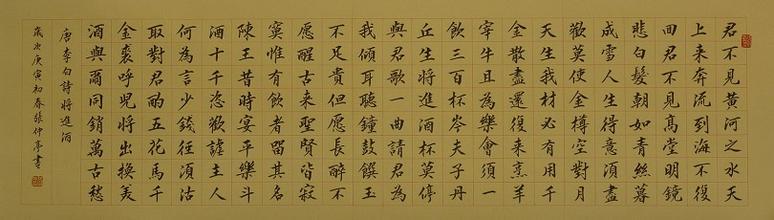 君不見黃河之水天
上来奔流到海不復
回君不見髙堂明鏡
悲白髮朝如青絲暮
成雪人生得意須盡
歡莫使金樽空對月
天生我材必有用千
金散盡還復来烹羊
宰牛且為樂會須一
飲三百杯岑夫子丹
丘生將進酒杯莫停
與君歌一曲請君為
我傾耳聽鐘鼓饌玉
不足貴但愿長醉不
愿醒古来聖賢皆寂
寞惟有飲者留其名
陳王昔時宴平樂斗
酒十千恣歡謔主人
何為言少錢徑須沽
取對君酌五花馬千
金裘呼兒將出換美
酒與爾同銷萬古愁
唐李白詩將進酒
歲次庚寅初春張仲亭書